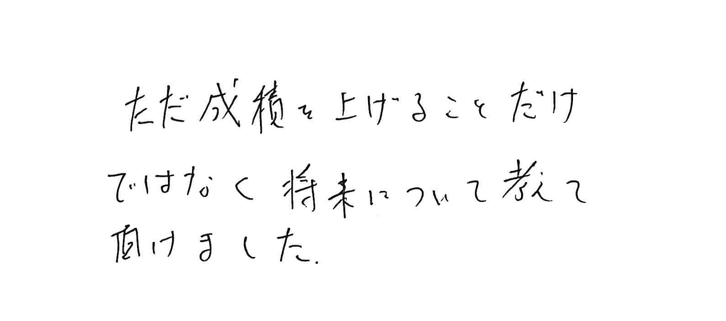 ただ成績を上げることだけ
ではなく将来について考えて
頂けました.